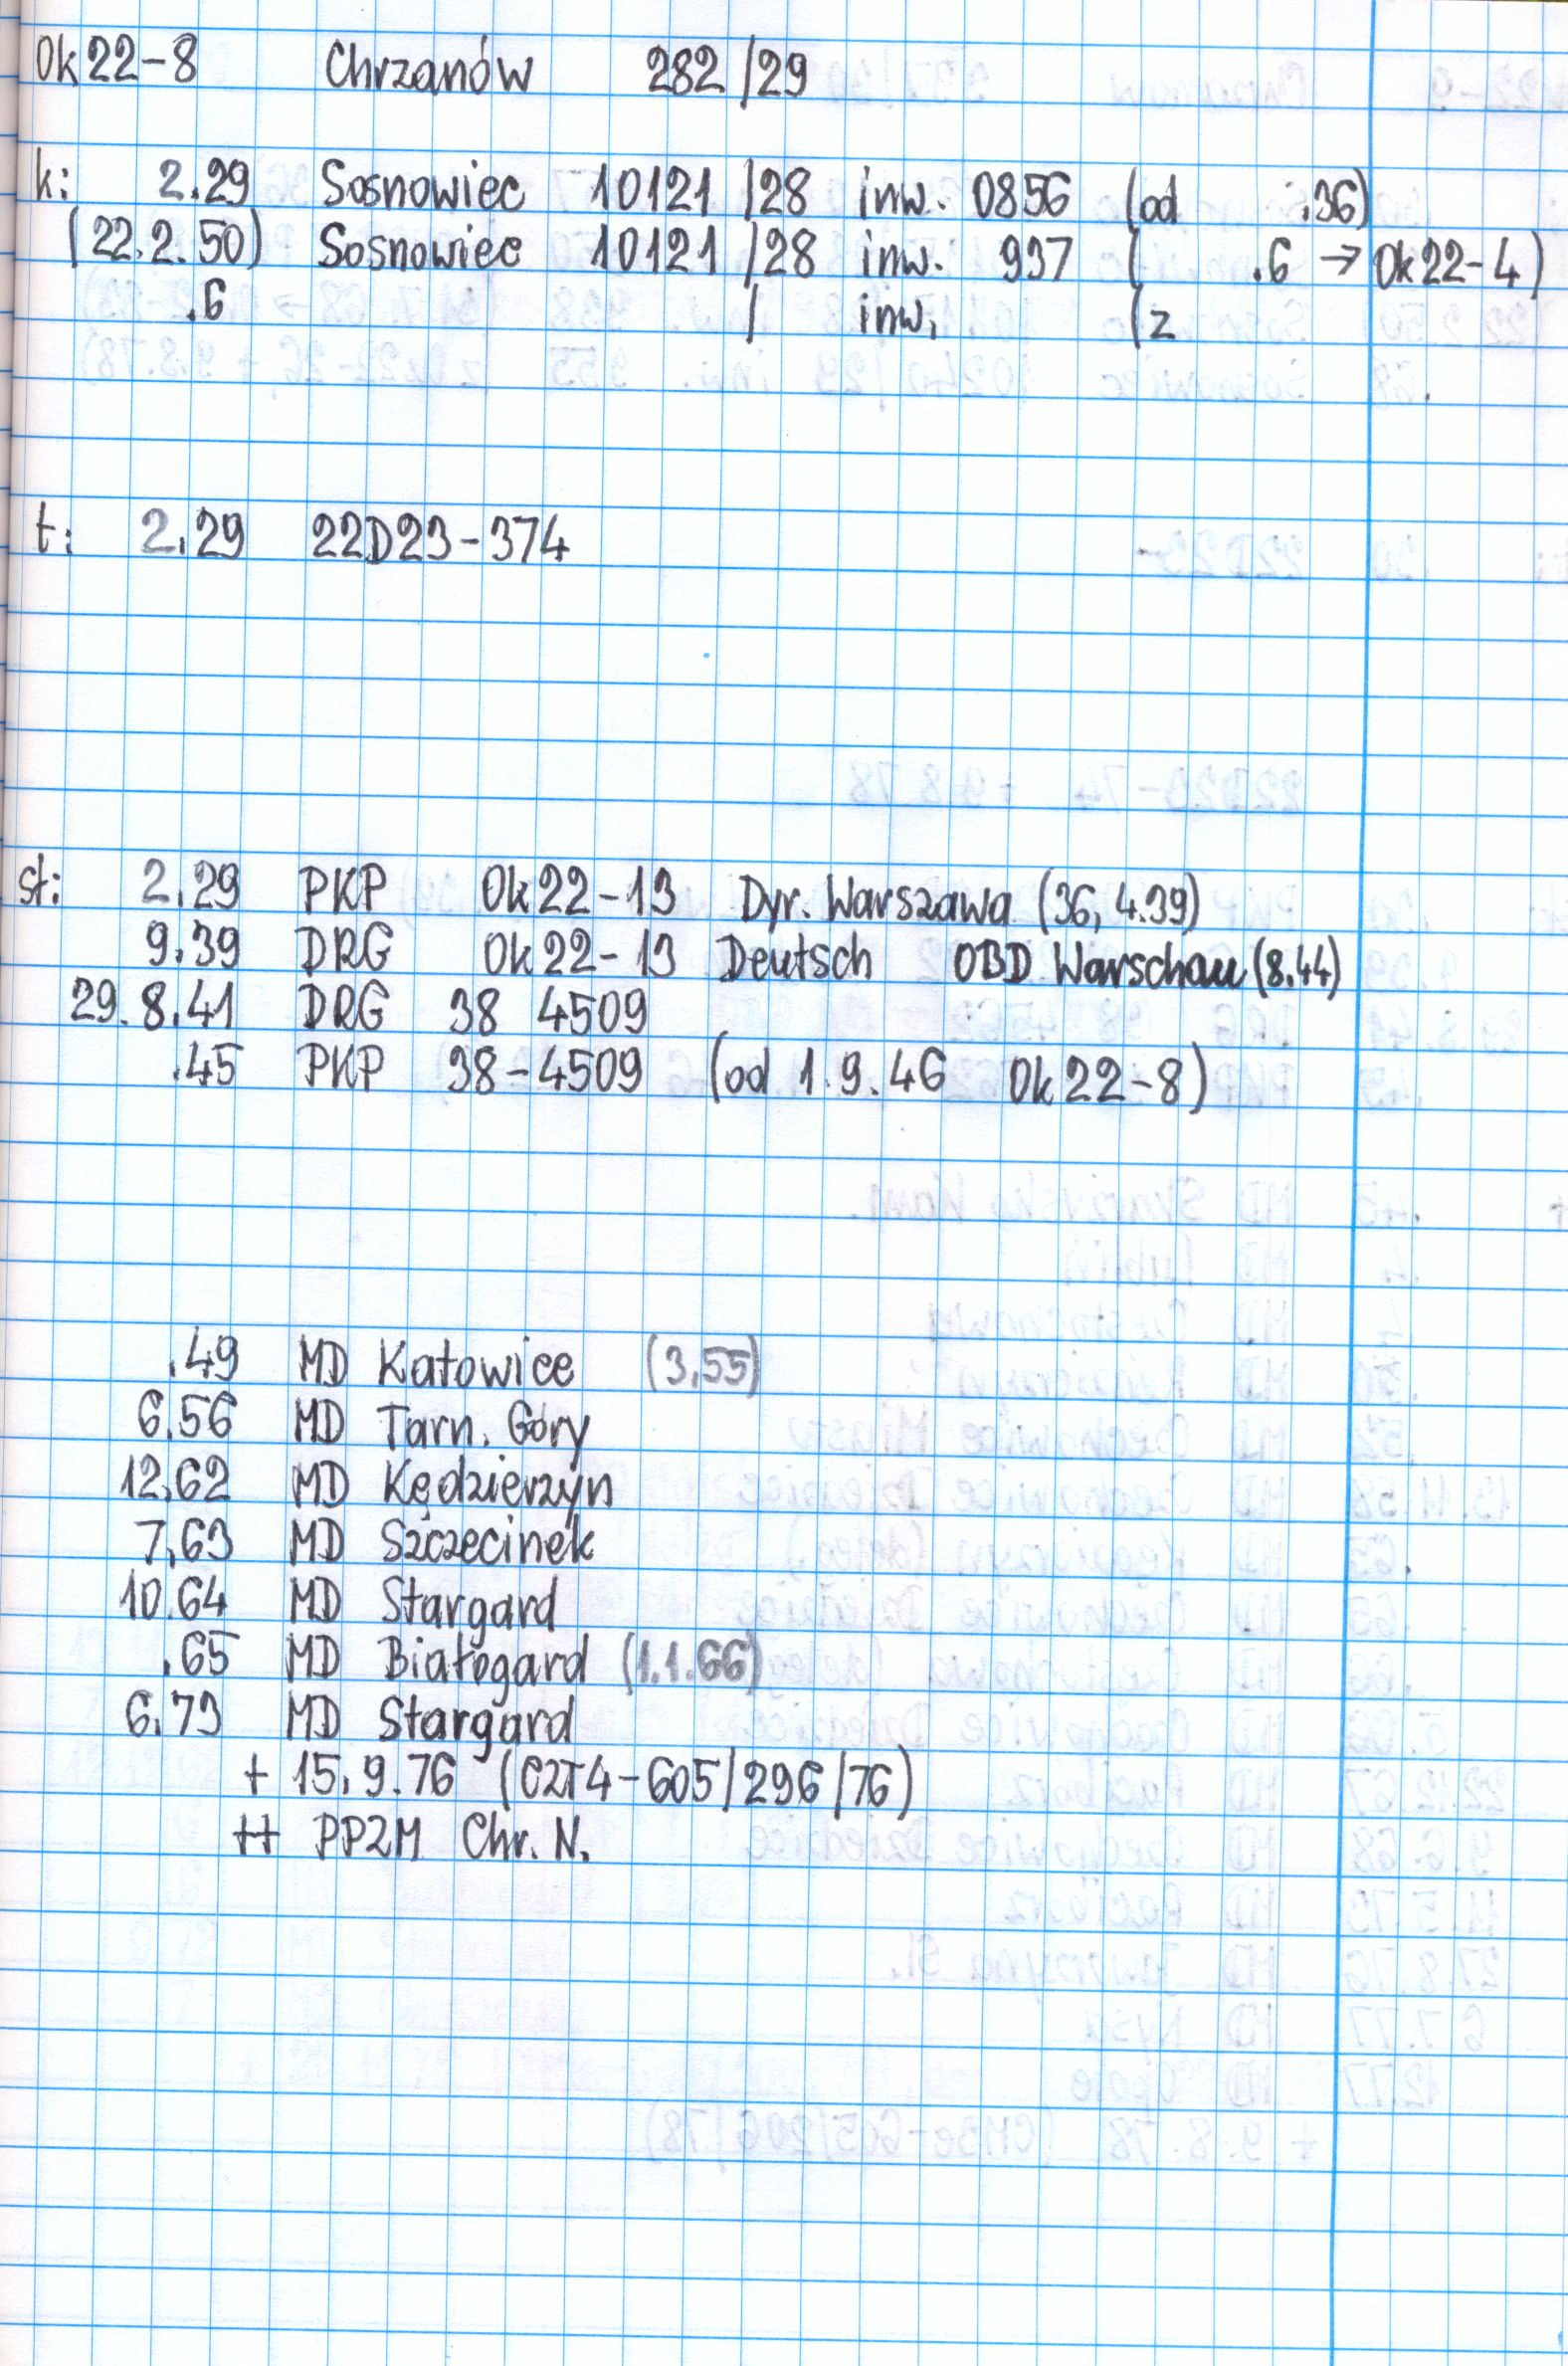 Ok22-8 Chrzanów 282/29
k: 2.29 Sosnowiec 10121/28 inw. 0856 (od .36)
(22.2.50) Sosnowiec 10121/28 inw. 937 ( .6 → Ok22-4)
.6 / inw. (z
t: 2.29 22D23-374
st: 2.29 PKP Ok22-13 Dyr. Warszawa (36, 4.39)
9.39 DRG Ok22-13 Deutsch OBD Warschau (8.44)
29.8.41 DRG 38 4509
.45 PKP 38-4509 (od 1.9.46 Ok22-8)
.49 MD Katowice (3.55)
6.56 MD Tarn. Góry
12.62 MD Kędzierzyn
7.63 MD Szczecinek
10.64 MD Stargard
.65 MD Białogard (1.1.66)
6.73 MD Stargard
+ 15.9.76 (CZT4-605/296/76)
++ PPZM Chr. N.